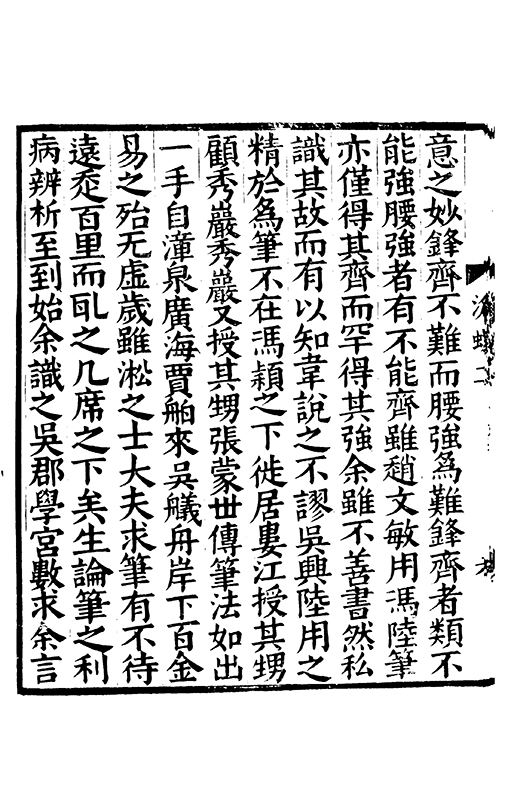 意之妙鋒齊不難而腰強為難鋒齊者類不
能強腰強者有不能齊雖趙文敏用馮陸筆
亦僅得其齊而罕得其強余雖不善書然私
識其故而有以知韋說之不謬吳興陸用之
精於為筆不在馮穎之下徙居婁江授其甥
顧秀巖秀巖又授其甥張蒙丗傳筆法如出
一手自漳泉廣海賈舶來吳艤舟岸下百金
易之殆无虛歲雖淞之士大夫求筆有不待
遠百里而之几席之下矣生論筆之利
病辨析至到始余識之吳郡學宮數求余言